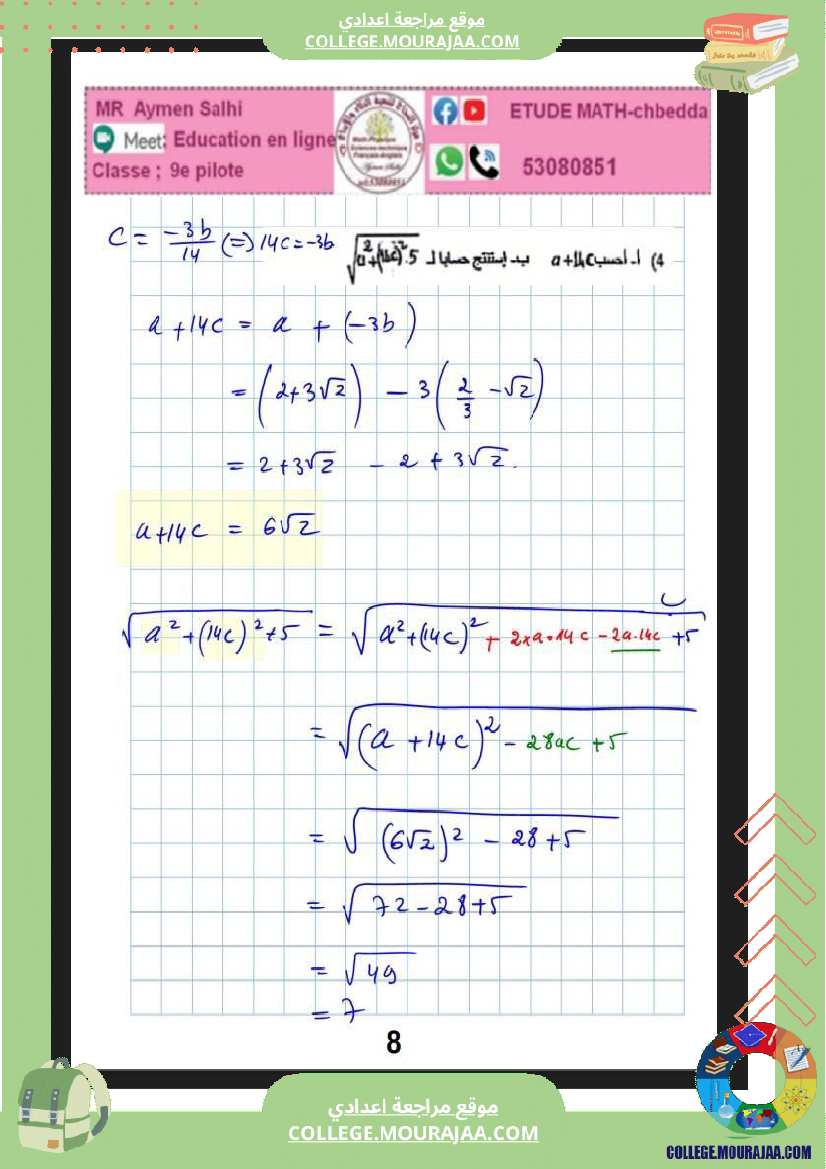 موقع مراجعة اعدادي
COLLEGE.MOURAJAA.COM
MR Aymen Salhi
Meet: Education en ligne
Classe ; 9e pilote
ETUDE MATH-chbedda
53080851
4) أ. أحسب a+14c ب. إستنتج حسابا لـ √(a²+(14c)²+5)
C = -3b/14 (=) 14c = -3b
a + 14c = a + (-3b)
= (2+3√2) - 3(2/3 - √2)
= 2+3√2 - 2 + 3√2.
a+14c = 6√2
√(a²+(14c)²+5) = √(a²+(14c)²+2×a×14c-2a·14c+5)
= √((a+14c)²-28ac+5)
= √((6√2)²-28+5)
= √(72-28+5)
= √49
= 7
8
موقع مراجعة اعدادي
COLLEGE.MOURAJAA.COM
COLLEGE.MOURAJAA.COM